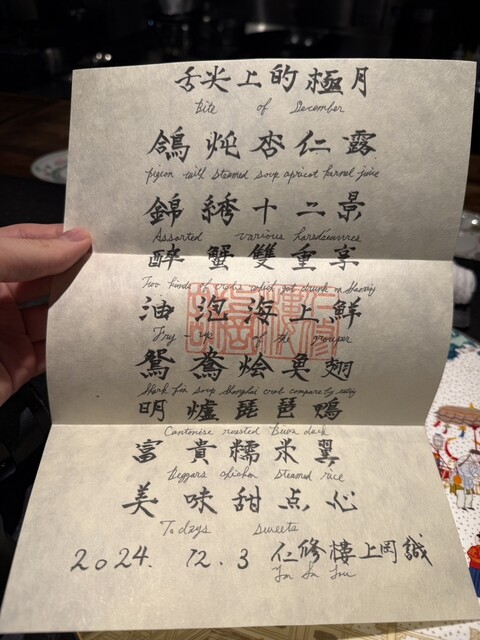 舌尖上的極月
Bite of December
鴿炖杏仁露
pigeon with steamed soup apricot kernel juice
錦綉十二景
Assorted various horsdoeuvres
醉蟹雙重享
Two kinds of crabs which got drunk on Shaoxing
油泡海上鮮
Fry-up of the grouper
鴛鴦燴魚翅
Shark fin soup Shanghai crab compare by
明爐琵琶鴨
Cantonise roasted Biwa duck
富貴糯米翼
Beggars chicken steamed rice
美味甜点心
Todays sweets
2024. 12. 3 仁修樓上岡誠